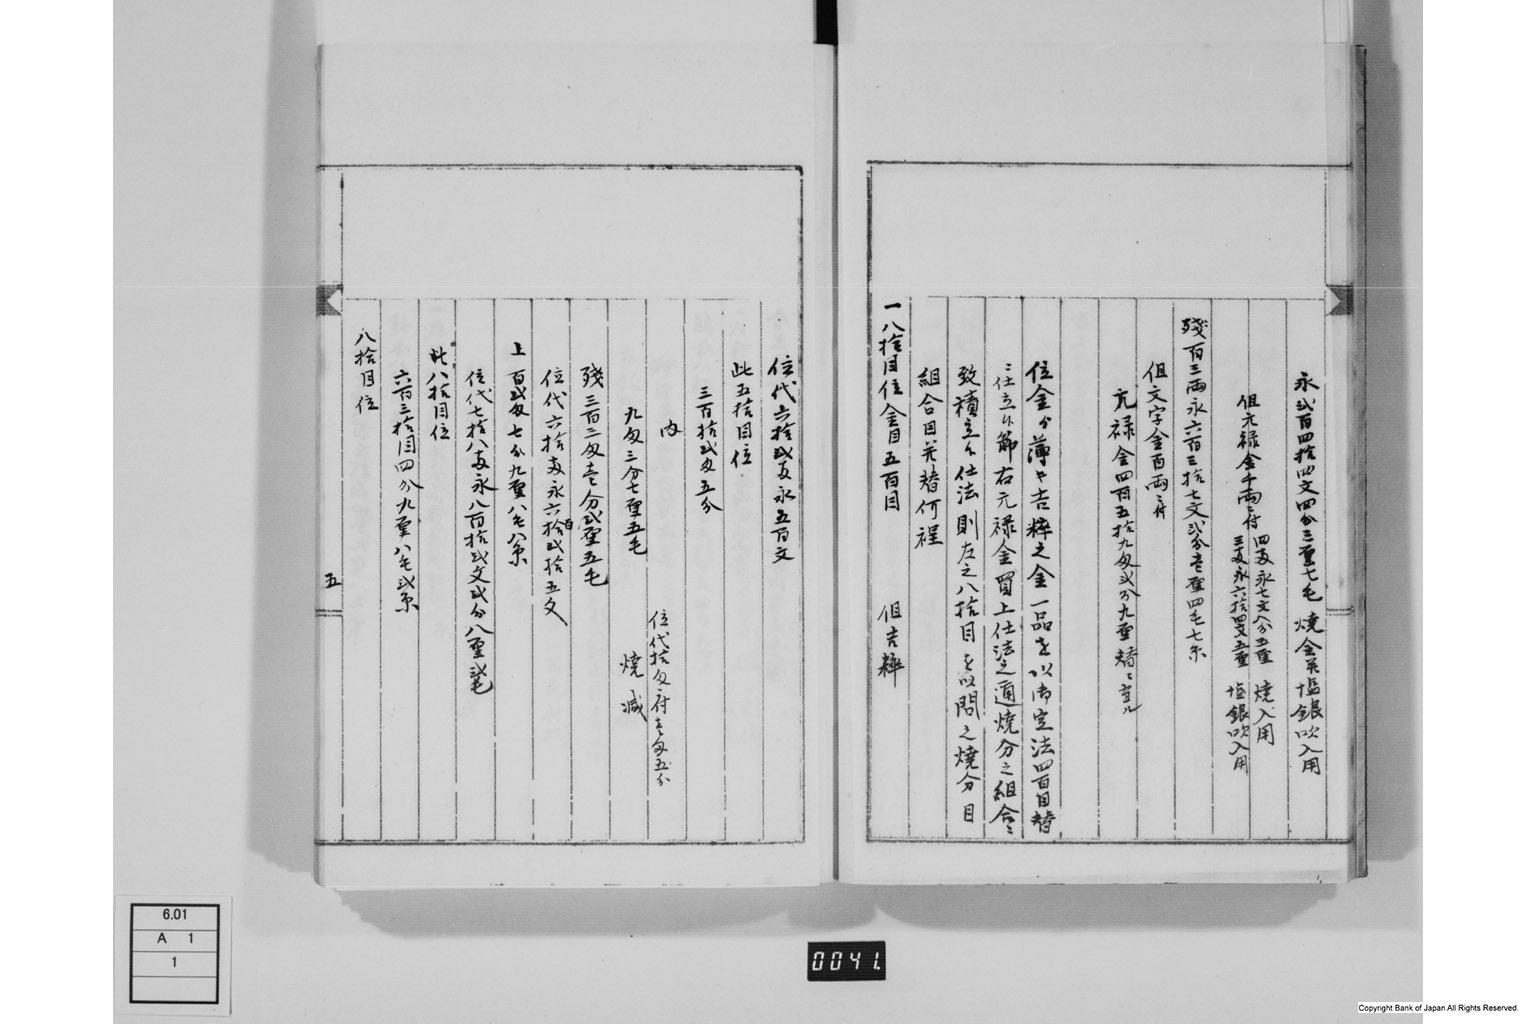 永弐百四拾四文四分三厘七毛 焼金并塩銀吹入用
但元禄金千両ニ付 四両永七文八分五厘 焼入用
三両永六拾四文五厘 塩銀吹入用
残百三両永六百三拾七文弐分壱厘四毛七糸
但文字金百両ニ付
元禄金四百五拾九匁弐分九厘替ニ当ル
位金分薄ヤ吉粋之金一品を以御定法四百目替
ニ仕立候節右元禄金買上仕法之通焼分之組合ニ
致積立候仕法則左之八拾目を以問之焼分目
組合目并替何程
一八拾目位金目五百目 但吉粋
位代六拾弐両永五百文
此五拾目位
三百拾弐匁五分
内
九匁三分七厘五毛 焼減
位代拾匁ニ付壱匁五分
残三百三匁壱分弐厘五毛
位代六拾両永六百弐拾五文
上百弐匁七分九厘八毛八糸
位代七拾八両永八百拾弐文弐分八厘弐毛
此八拾目位
六百三拾目四分九厘八毛弐糸
八拾目位
五
6.01
A 1
1
0041.
Copyright Bank of Japan All Rights Reserved.